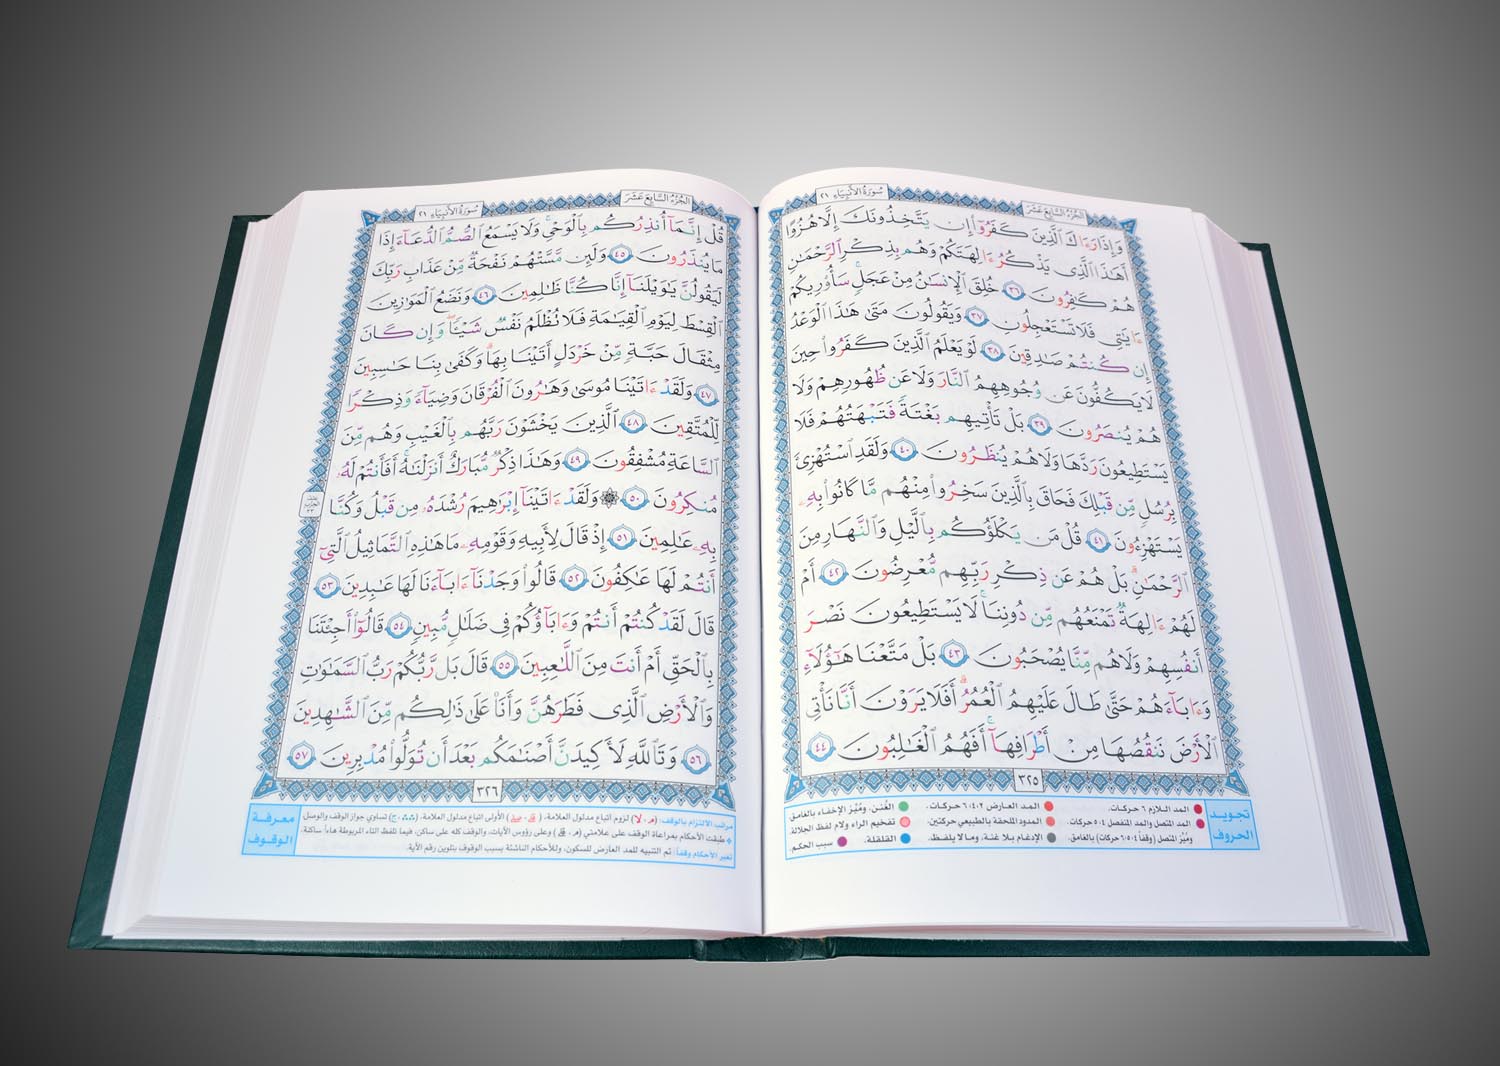 سُورَةُ الأَنبِيَاءِ ٢١
الجُزْءُ السَّابِعَ عَشَرَ
وَإِذَا رَءَاكَ ٱلَّذِينَ كَفَرُوٓا۟ إِن يَتَّخِذُونَكَ إِلَّا هُزُوًا
أَهَٰذَا ٱلَّذِى يَذْكُرُ ءَالِهَتَكُمْ وَهُم بِذِكْرِ ٱلرَّحْمَٰنِ
هُمْ كَٰفِرُونَ ٣٦ خُلِقَ ٱلْإِنسَٰنُ مِنْ عَجَلٍ ۚ سَأُو۟رِيكُمْ
ءَايَٰتِى فَلَا تَسْتَعْجِلُونِ ٣٧ وَيَقُولُونَ مَتَىٰ هَٰذَا ٱلْوَعْدُ
إِن كُنتُمْ صَٰدِقِينَ ٣٨ لَوْ يَعْلَمُ ٱلَّذِينَ كَفَرُوا۟ حِينَ
لَا يَكُفُّونَ عَن وُجُوهِهِمُ ٱلنَّارَ وَلَا عَن ظُهُورِهِمْ وَلَا
هُمْ يُنصَرُونَ ٣٩ بَلْ تَأْتِيهِم بَغْتَةً فَتَبْهَتُهُمْ فَلَا
يَسْتَطِيعُونَ رَدَّهَا وَلَا هُمْ يُنظَرُونَ ٤٠ وَلَقَدِ ٱسْتُهْزِئَ
بِرُسُلٍ مِّن قَبْلِكَ فَحَاقَ بِٱلَّذِينَ سَخِرُوا۟ مِنْهُم مَّا كَانُوا۟ بِهِۦ
يَسْتَهْزِءُونَ ٤١ قُلْ مَن يَكْلَؤُكُم بِٱلَّيْلِ وَٱلنَّهَارِ مِنَ
ٱلرَّحْمَٰنِ ۗ بَلْ هُمْ عَن ذِكْرِ رَبِّهِم مُّعْرِضُونَ ٤٢ أَمْ
لَهُمْ ءَالِهَةٌ تَمْنَعُهُم مِّن دُونِنَا ۚ لَا يَسْتَطِيعُونَ نَصْرَ
أَنفُسِهِمْ وَلَا هُم مِّنَّا يُصْحَبُونَ ٤٣ بَلْ مَتَّعْنَا هَٰٓؤُلَآءِ
وَءَابَآءَهُمْ حَتَّىٰ طَالَ عَلَيْهِمُ ٱلْعُمُرُ ۗ أَفَلَا يَرَوْنَ أَنَّا نَأْتِى
ٱلْأَرْضَ نَنقُصُهَا مِنْ أَطْرَافِهَآ ۚ أَفَهُمُ ٱلْغَٰلِبُونَ ٤٤
٣٢٥
تجويد الحروف
المد اللازم ٦ حركات. المد العارض ٦/٤/٢ حركات. الغُنن، ومُيّز الإخفاء بالغامق
المد المتصل والمد المنفصل ٥/٤ حركات. المدود الملحقة بالطبيعي حركتين. تفخيم الراء ولام لفظ الجلالة
ومُيّز المتصل (وقفاً ٦/٥/٤ حركات) بالغامق. الإدغام بلا غنة، وما لا يلفظ. القلقلة. سبب الحكم.
الجُزْءُ السَّابِعَ عَشَرَ
سُورَةُ الأَنبِيَاءِ ٢١
قُلْ إِنَّمَآ أُنذِرُكُم بِٱلْوَحْىِ ۚ وَلَا يَسْمَعُ ٱلصُّمُّ ٱلدُّعَآءَ إِذَا
مَا يُنذَرُونَ ٤٥ وَلَئِن مَّسَّتْهُمْ نَفْحَةٌ مِّنْ عَذَابِ رَبِّكَ
لَيَقُولُنَّ يَٰوَيْلَنَآ إِنَّا كُنَّا ظَٰلِمِينَ ٤٦ وَنَضَعُ ٱلْمَوَٰزِينَ
ٱلْقِسْطَ لِيَوْمِ ٱلْقِيَٰمَةِ فَلَا تُظْلَمُ نَفْسٌ شَيْـًٔا ۖ وَإِن كَانَ
مِثْقَالَ حَبَّةٍ مِّنْ خَرْدَلٍ أَتَيْنَا بِهَا ۗ وَكَفَىٰ بِنَا حَٰسِبِينَ
٤٧ وَلَقَدْ ءَاتَيْنَا مُوسَىٰ وَهَٰرُونَ ٱلْفُرْقَانَ وَضِيَآءً وَذِكْرًا
لِّلْمُتَّقِينَ ٤٨ ٱلَّذِينَ يَخْشَوْنَ رَبَّهُم بِٱلْغَيْبِ وَهُم مِّنَ
ٱلسَّاعَةِ مُشْفِقُونَ ٤٩ وَهَٰذَا ذِكْرٌ مُّبَارَكٌ أَنزَلْنَٰهُ ۚ أَفَأَنتُمْ لَهُۥ
مُنكِرُونَ ٥٠ ۞ وَلَقَدْ ءَاتَيْنَآ إِبْرَٰهِيمَ رُشْدَهُۥ مِن قَبْلُ وَكُنَّا
بِهِۦ عَٰلِمِينَ ٥١ إِذْ قَالَ لِأَبِيهِ وَقَوْمِهِۦ مَا هَٰذِهِ ٱلتَّمَاثِيلُ ٱلَّتِىٓ
أَنتُمْ لَهَا عَٰكِفُونَ ٥٢ قَالُوا۟ وَجَدْنَآ ءَابَآءَنَا لَهَا عَٰبِدِينَ ٥٣
قَالَ لَقَدْ كُنتُمْ أَنتُمْ وَءَابَآؤُكُمْ فِى ضَلَٰلٍ مُّبِينٍ ٥٤ قَالُوٓا۟ أَجِئْتَنَا
بِٱلْحَقِّ أَمْ أَنتَ مِنَ ٱللَّٰعِبِينَ ٥٥ قَالَ بَل رَّبُّكُمْ رَبُّ ٱلسَّمَٰوَٰتِ
وَٱلْأَرْضِ ٱلَّذِى فَطَرَهُنَّ وَأَنَا۠ عَلَىٰ ذَٰلِكُم مِّنَ ٱلشَّٰهِدِينَ
٥٦ وَتَٱللَّهِ لَأَكِيدَنَّ أَصْنَٰمَكُم بَعْدَ أَن تُوَلُّوا۟ مُدْبِرِينَ ٥٧
٣٢٦
معرفة الوقوف
مراتب الالتزام بالوقف: (م، لا) لزوم اتباع مدلول العلامة، (قلى، صلى) الأولى اتباع مدلول العلامة، (ج) تساوي جواز الوقف والوصل
طبقت الأحكام بمراعاة الوقف على علامتي (م، قلى) وعلى رؤوس الآيات، والوقف كله على ساكن، فيما تلفظ التاء المربوطة هاءاً ساكنة.
تغير الأحكام وقفاً: تم التنبيه للمد العارض للسكون، وللأحكام الناشئة بسبب الوقوف بتلوين رقم الآية.